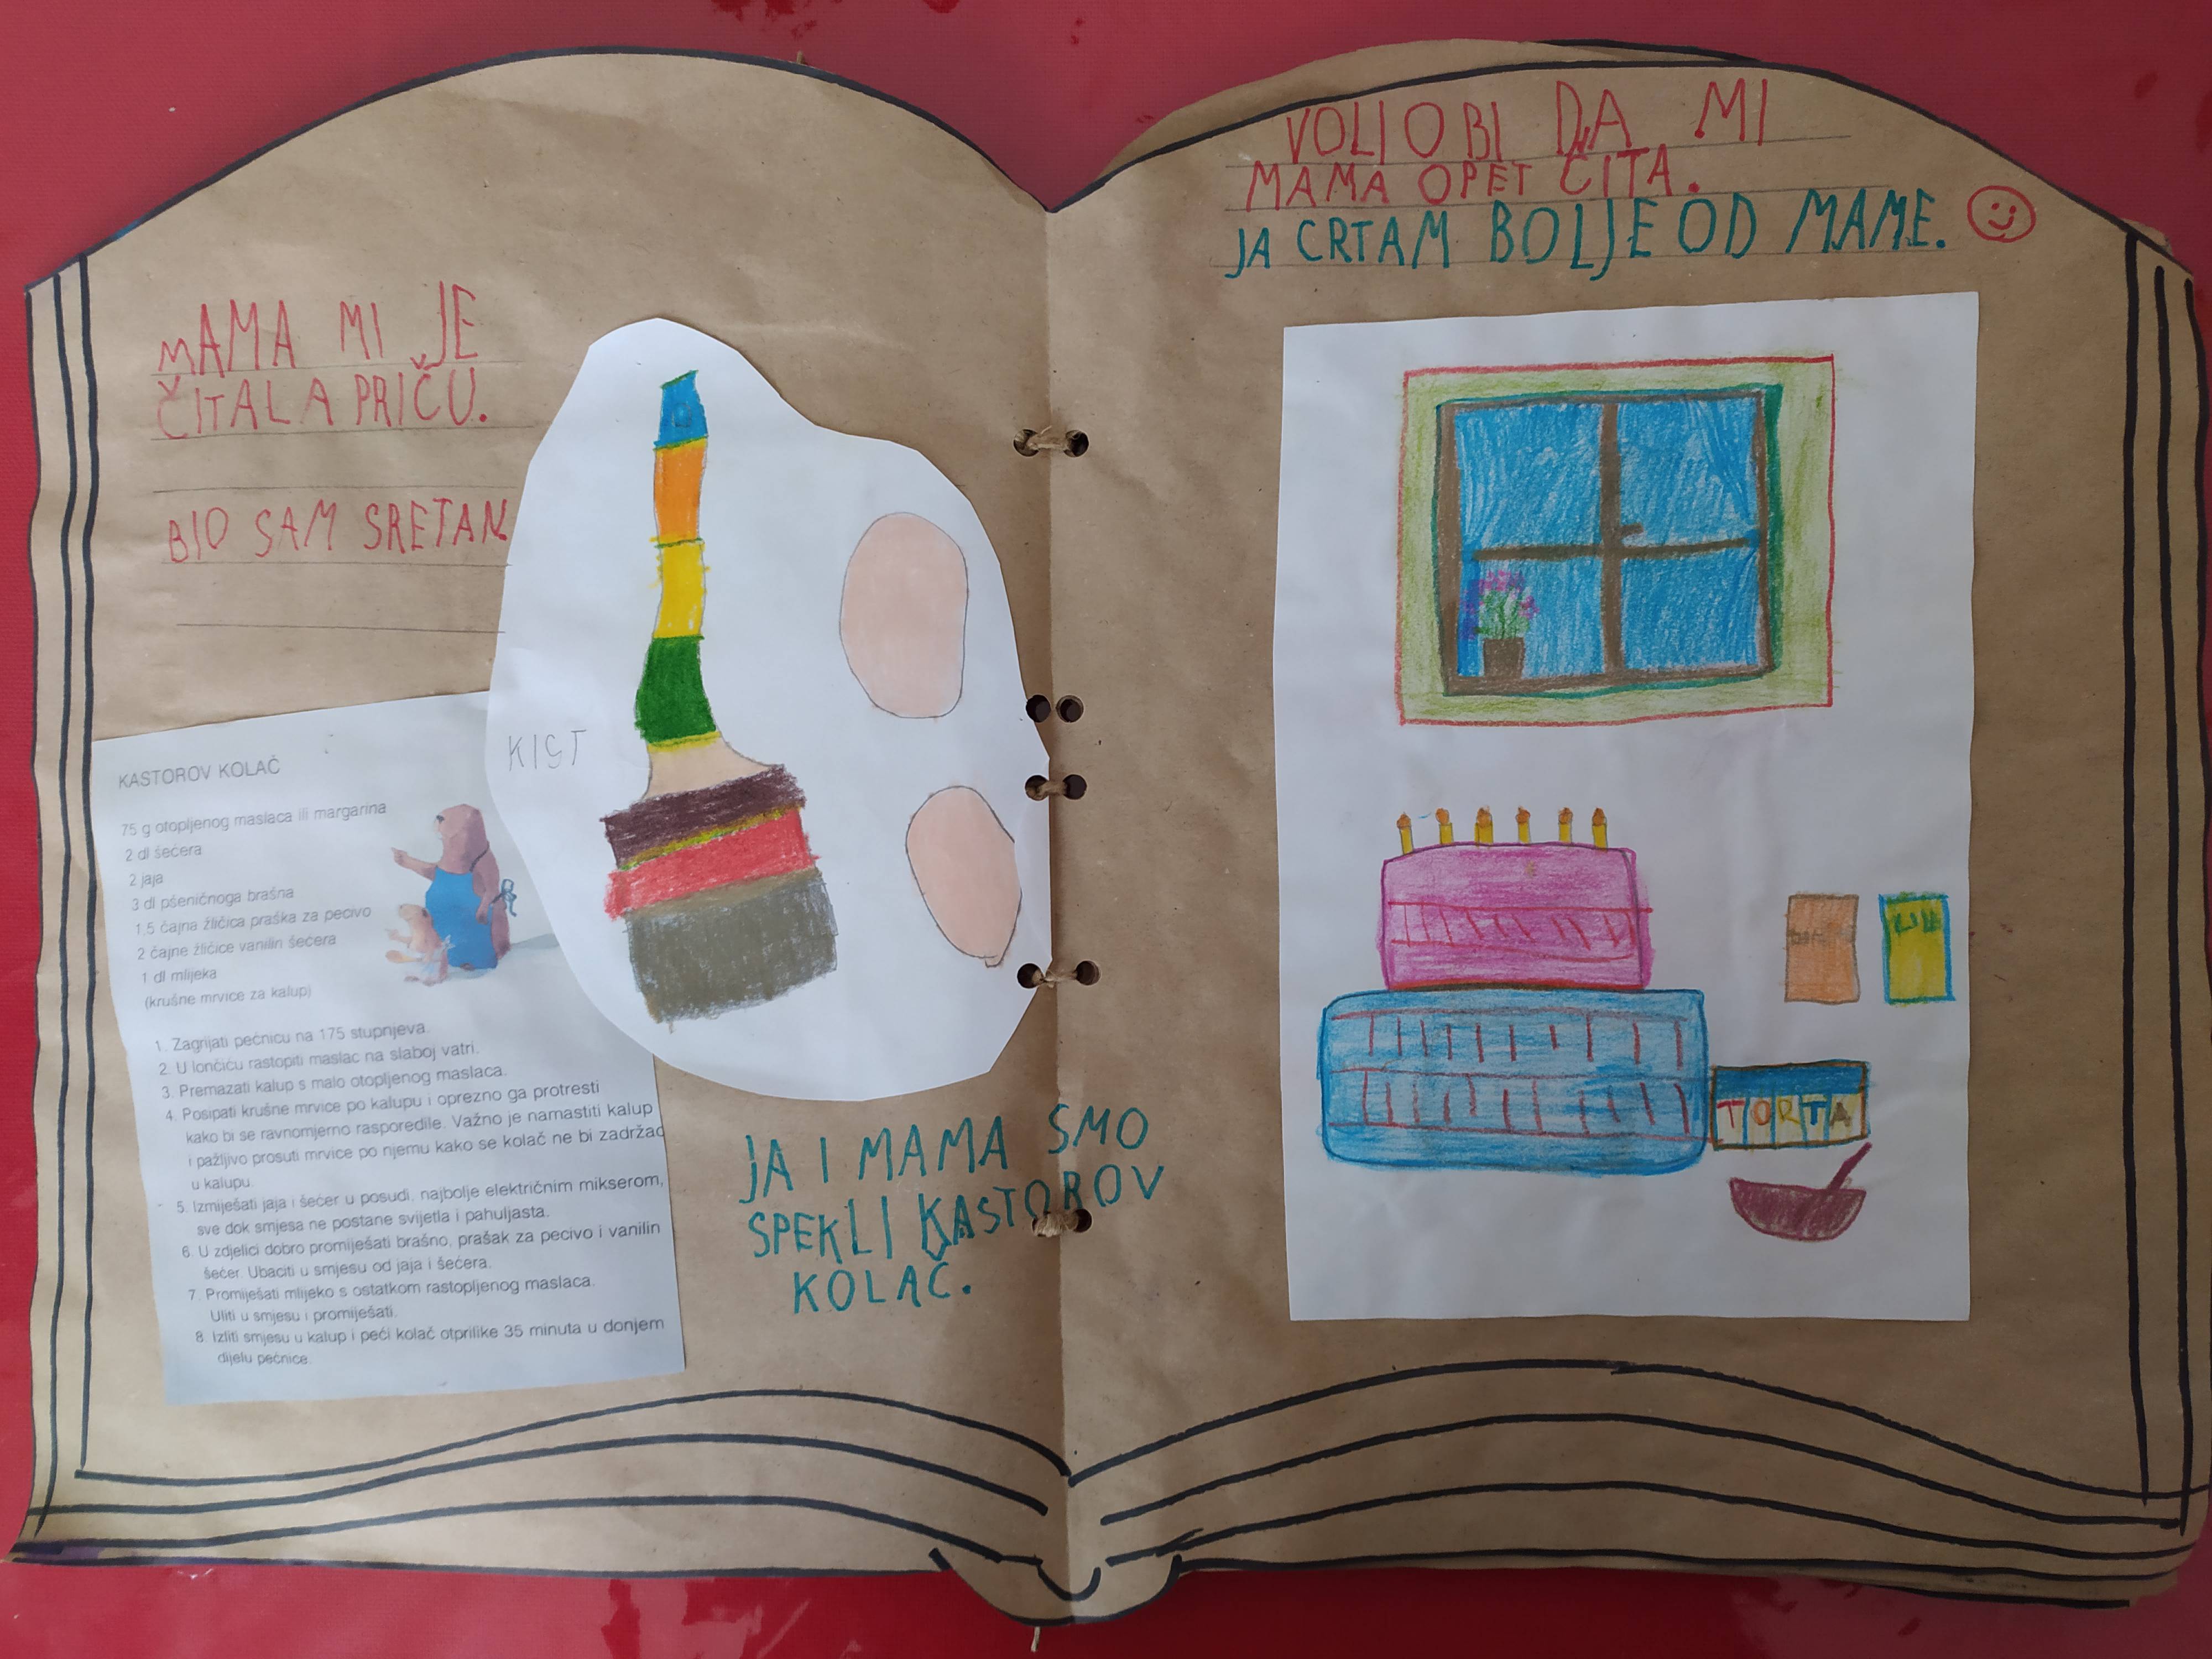 MAMA MI JE
ČITALA PRIČU.
BIO SAM SRETAN.
KIST
KASTOROV KOLAČ
75 g otopljenog maslaca ili margarina
2 dl šećera
2 jaja
3 dl pšeničnoga brašna
1,5 čajna žličica praška za pecivo
2 čajne žličice vanilin šećera
1 dl mlijeka
(krušne mrvice za kalup)
1. Zagrijati pećnicu na 175 stupnjeva.
2. U lončiću rastopiti maslac na slaboj vatri.
3. Premazati kalup s malo otopljenog maslaca.
4. Posipati krušne mrvice po kalupu i oprezno ga protresti
kako bi se ravnomjerno rasporedile. Važno je namastiti kalup
i pažljivo prosuti mrvice po njemu kako se kolač ne bi zadržao
u kalupu.
5. Izmiješati jaja i šećer u posudi, najbolje električnim mikserom,
sve dok smjesa ne postane svijetla i pahuljasta.
6. U zdjelici dobro promiješati brašno, prašak za pecivo i vanilin
šećer. Ubaciti u smjesu od jaja i šećera.
7. Promiješati mlijeko s ostatkom rastopljenog maslaca.
Uliti u smjesu i promiješati.
8. Izliti smjesu u kalup i peći kolač otprilike 35 minuta u donjem
dijelu pećnice.
JA I MAMA SMO
SPEKLI KASTOROV
KOLAČ.
VOLIO BI DA MI
MAMA OPET ČITA.
JA CRTAM BOLJE OD MAME.
TORTA